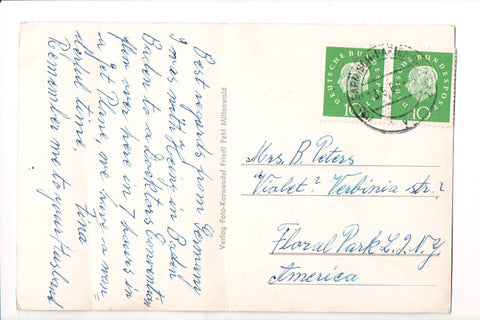 Best regards from Germany
I was with Heinz in Baden
Baden to a Doktors Convention
flew over here in 7 hours in
a Jet Plane, we have a won=
derful time.
Tina
Remember me to your Husband
Verlag Foto-Karwendel Friedl Pehl Mittenwald
DEUTSCHE BUNDESPOST
10
DEUTSCHE BUNDESPOST
10
GARMISCH-PARTENKIRCHEN
Mrs. B. Peters
"Violet? Verbinia str.?
Floral Park L.I. N.Y.
America